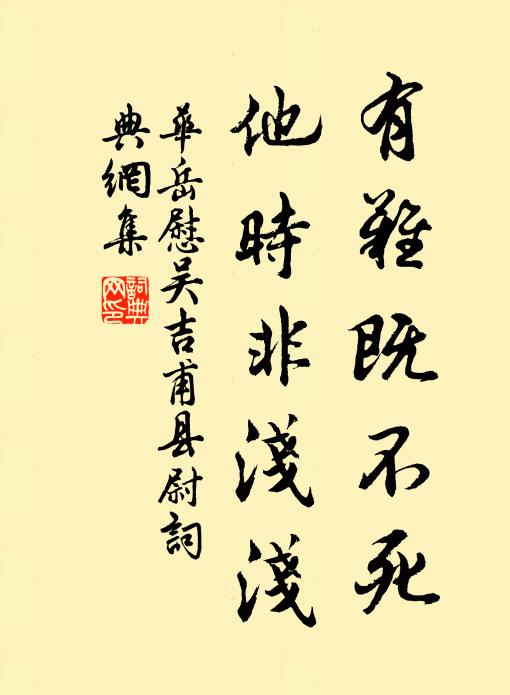 有難既不死
他時非淺淺
華岳慰吴吉甫县尉詞
典網集
詞典
网印